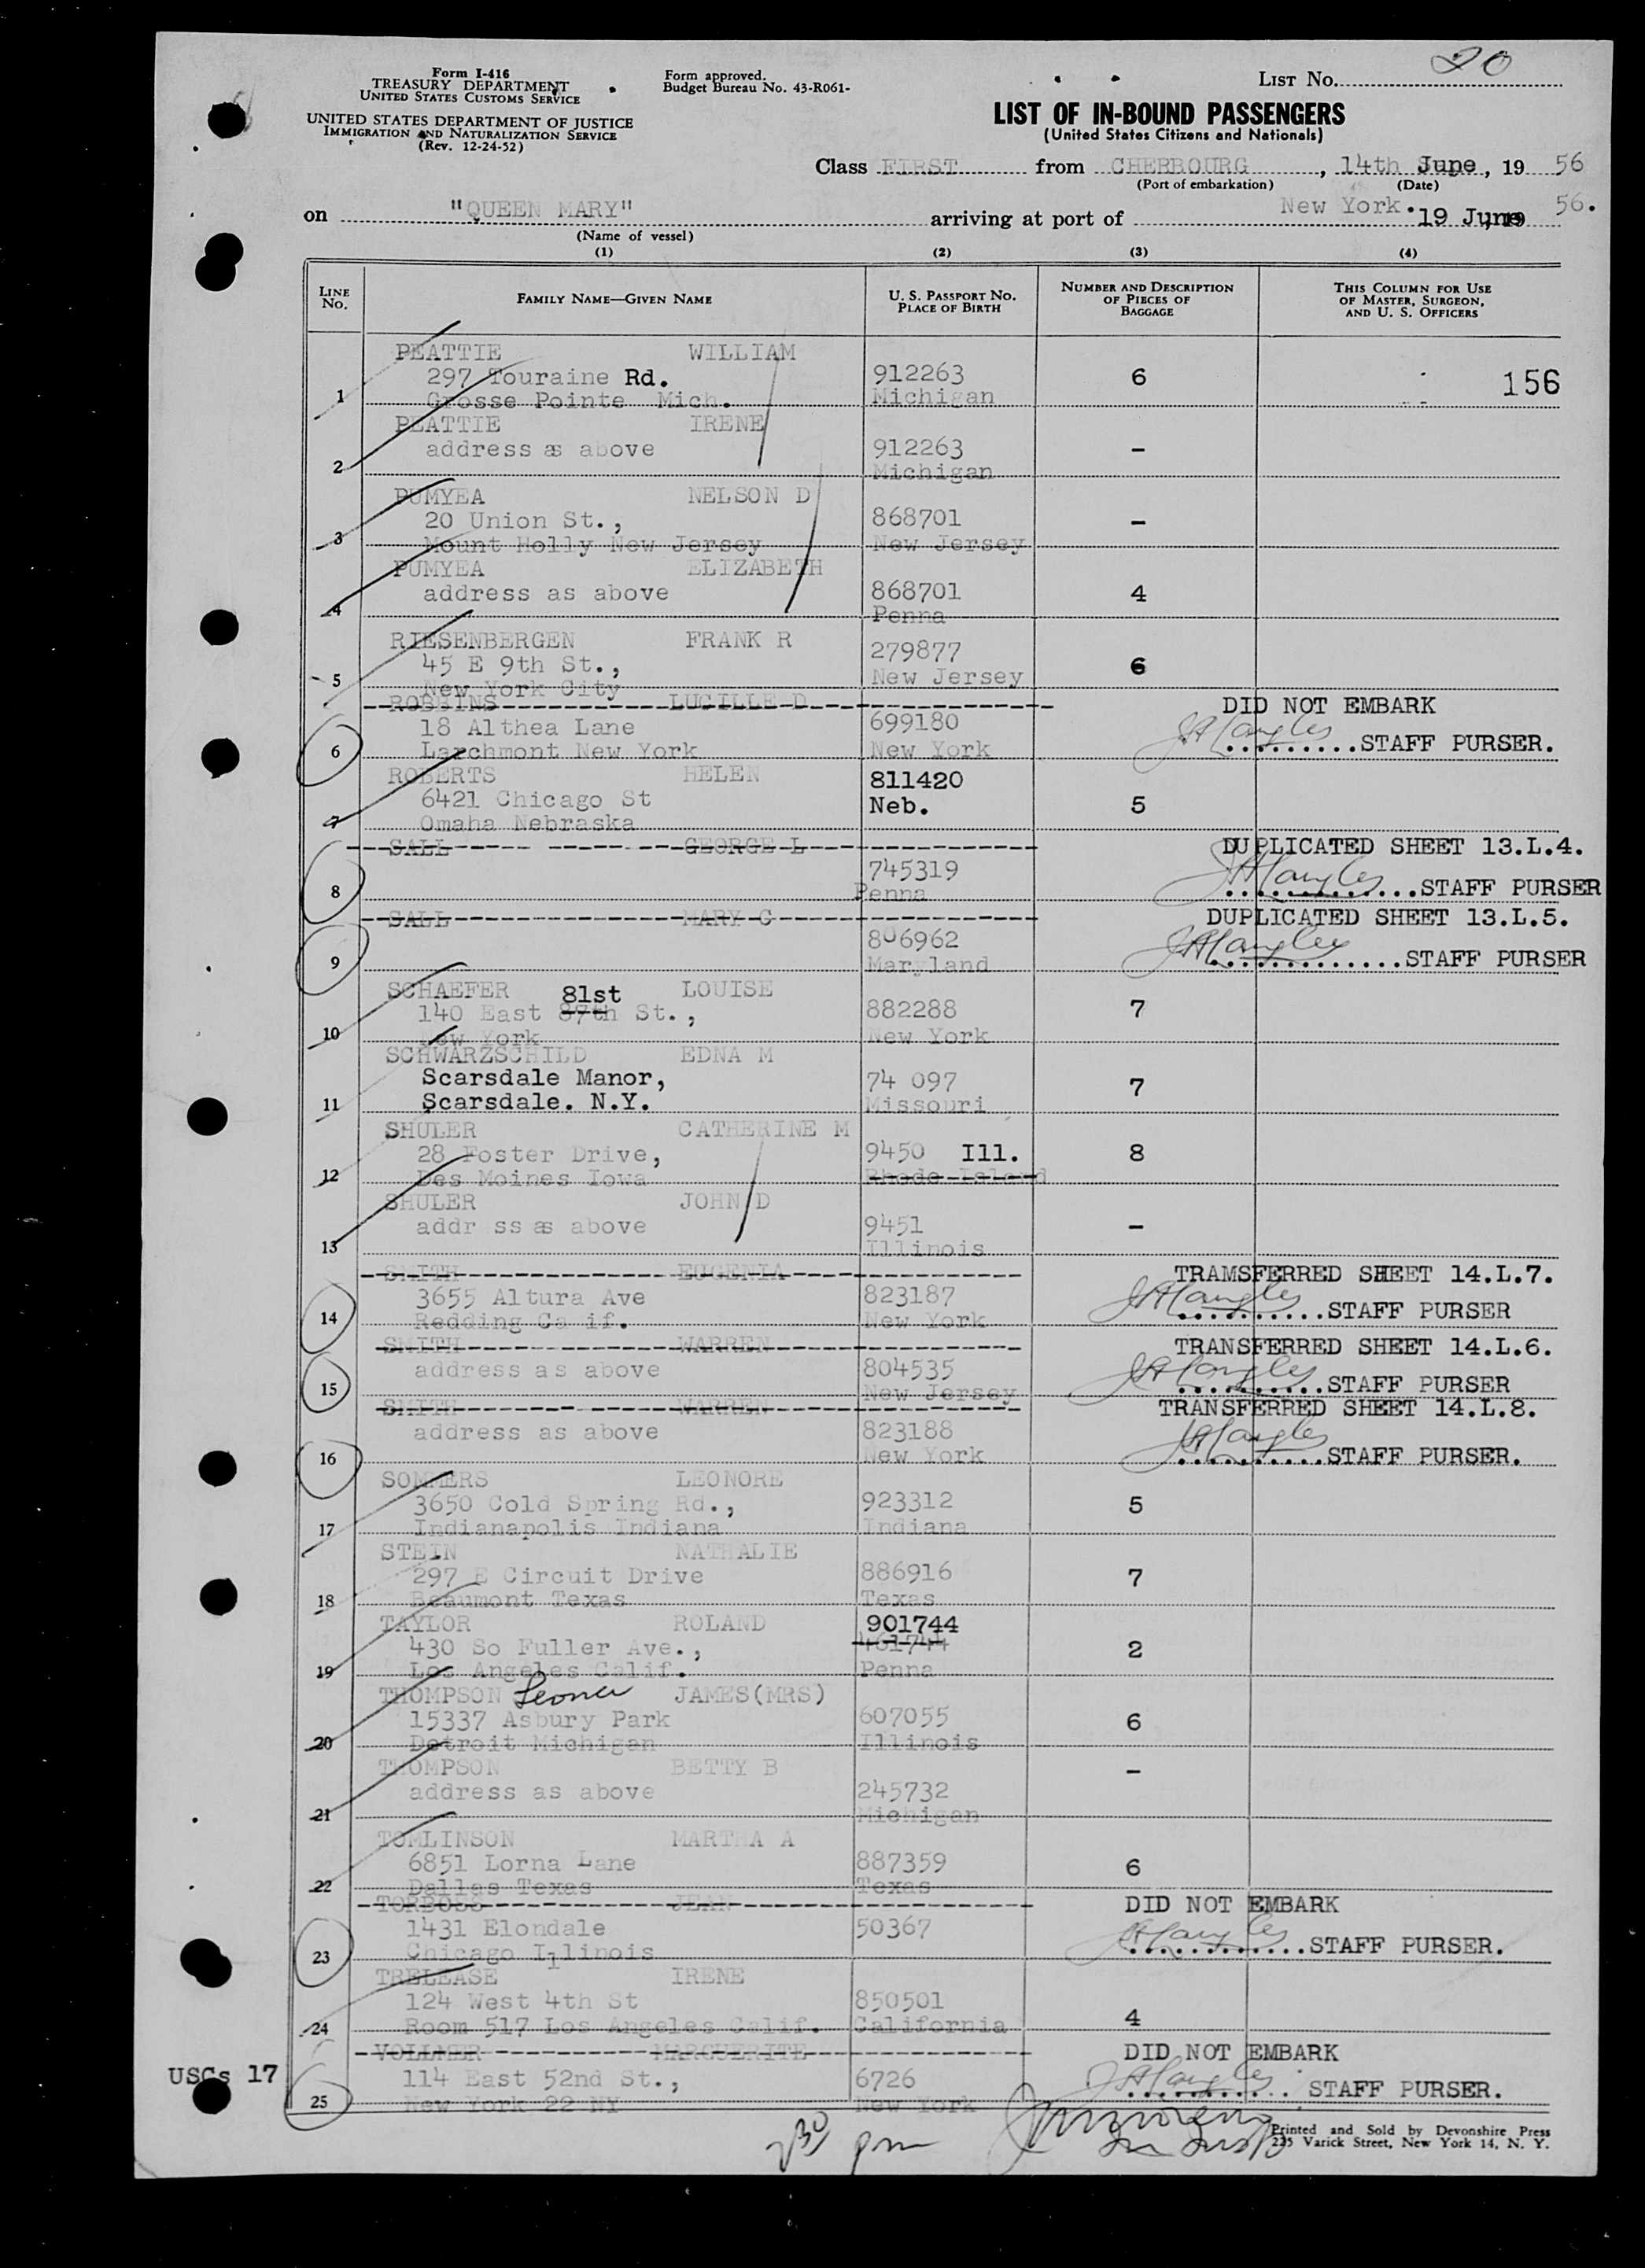 Form I-416
TREASURY DEPARTMENT
UNITED STATES CUSTOMS SERVICE
UNITED STATES DEPARTMENT OF JUSTICE
IMMIGRATION AND NATURALIZATION SERVICE
(Rev. 12-24-52)
Form approved.
Budget Bureau No. 43-R061-
LIST No. 20
LIST OF IN-BOUND PASSENGERS
(United States Citizens and Nationals)
Class FIRST from CHERBOURG, 14th June, 19 56
(Port of embarkation) (Date)
on "QUEEN MARY" arriving at port of New York. 19 June 19 56.
(Name of vessel)
(1) (2) (3) (4)
LINE No. FAMILY NAME—GIVEN NAME U. S. PASSPORT NO. PLACE OF BIRTH NUMBER AND DESCRIPTION OF PIECES OF BAGGAGE THIS COLUMN FOR USE OF MASTER, SURGEON, AND U. S. OFFICERS
PEATTIE WILLIAM
297 Touraine Rd. 912263 6 156
1 Grosse Pointe Mich. Michigan
PEATTIE IRENE
address as above 912263 -
2 Michigan
PUMYEA NELSON D
20 Union St., 868701 -
3 Mount Holly New Jersey New Jersey
PUMYEA ELIZABETH
address as above 868701 4
4 Penna
RIESENBERGEN FRANK R 279877
45 E 9th St., New Jersey 6
5 New York City
ROBBINS LUCILLE D DID NOT EMBARK
18 Althea Lane 699180
6 Larchmont New York New York STAFF PURSER.
ROBERTS HELEN 811420
6421 Chicago St Neb. 5
7 Omaha Nebraska
SALL GEORGE L DUPLICATED SHEET 13.L.4.
745319
8 Penna STAFF PURSER
SALL MARY C DUPLICATED SHEET 13.L.5.
806962
9 Maryland STAFF PURSER
SCHAEFER 81st LOUISE
140 East 87th St., 882288 7
10 New York New York
SCHWARZSCHILD EDNA M
Scarsdale Manor, 74 097 7
11 Scarsdale. N.Y. Missouri
SHULER CATHERINE M
28 Foster Drive, 9450 Ill. 8
12 Des Moines Iowa Rhode Island
SHULER JOHN D
addr ss as above 9451 -
13 Illinois
SMITH EUGENIA TRAMSFERRED SHEET 14.L.7.
3655 Altura Ave 823187
14 Redding Ca if. New York STAFF PURSER
SMITH WARREN TRANSFERRED SHEET 14.L.6.
address as above 804535
15 New Jersey STAFF PURSER
SMITH WARREN TRANSFERRED SHEET 14.L.8.
address as above 823188
16 New York STAFF PURSER.
SOMMERS LEONORE
3650 Cold Spring Rd., 923312 5
17 Indianapolis Indiana Indiana
STEIN NATHALIE
297 E Circuit Drive 886916 7
18 Beaumont Texas Texas
TAYLOR ROLAND 901744
430 So Fuller Ave., 461744 2
19 Los Angeles Calif. Penna
THOMPSON Leona JAMES(MRS)
15337 Asbury Park 607055 6
20 Detroit Michigan Illinois
THOMPSON BETTY B -
address as above 245732
21 Michigan
TOMLINSON MARTHA A
6851 Lorna Lane 887359 6
22 Dallas Texas Texas
JEAN DID NOT EMBARK
1431 Elondale 50367
23 Chicago Illinois STAFF PURSER.
TRELEASE IRENE
124 West 4th St 850501 4
24 Room 517 Los Angeles Calif. California
VOLLMER MARGUERITE DID NOT EMBARK
USCs 17 114 East 52nd St., 6726 STAFF PURSER.
25 New York 22 NY New York
2 30 pm
Printed and Sold by Devonshire Press
225 Varick Street, New York 14, N. Y.